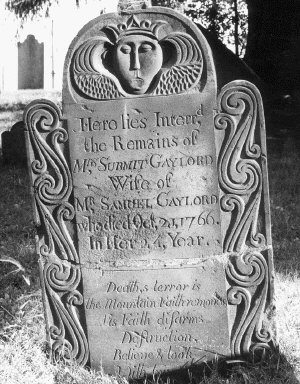 Here lies Interr'd
the Remains of
Mrs Submit Gaylord
Wife of
Mr Samuel Gaylord
who died Oct, 1766.
In Her 24, Year.
Death,s terror is
the Mountain Faith removes
Tis Faith disarms
Destruction.
Believe & look
With